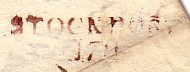 STOCKPORT
17